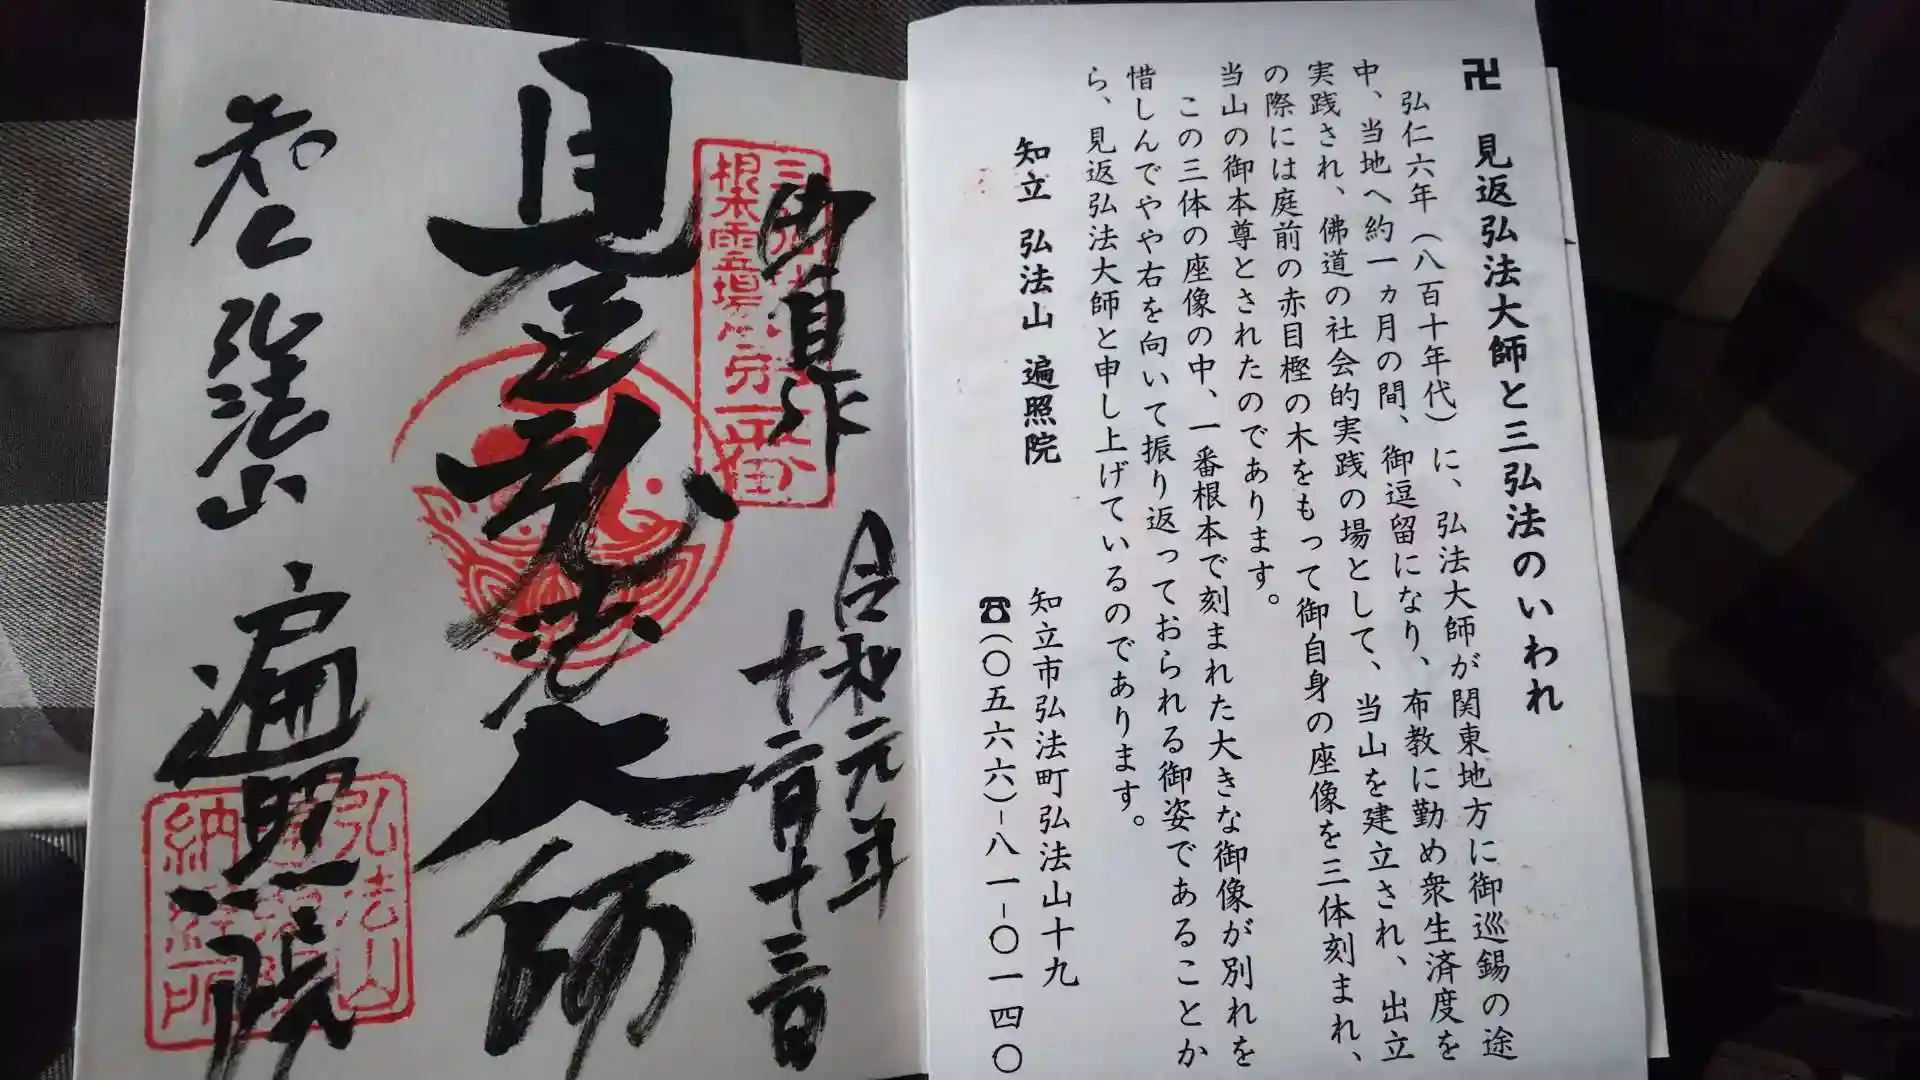 卍 見返弘法大師と三弘法のいわれ
弘仁六年（八百十年代）に、弘法大師が関東地方に御巡錫の途
中、当地へ約一ヵ月の間、御逗留になり、布教に勤め衆生済度を
実践され、佛道の社会的実践の場として、当山を建立され、出立
の際には庭前の赤目樫の木をもって御自身の座像を三体刻まれ、
当山の御本尊とされたのであります。
この三体の座像の中、一番根本で刻まれた大きな御像が別れを
惜しんでやや右を向いて振り返っておられる御姿であることか
ら、見返弘法大師と申し上げているのであります。
知立 弘法山 遍照院
知立市弘法町弘法山十九
☎(〇五六六)-八一-〇一四〇
御自作
根本霊場第一番
令和元年
十二月十三日
見返弘法大師
知立 弘法山 遍照院
弘法山
納経所